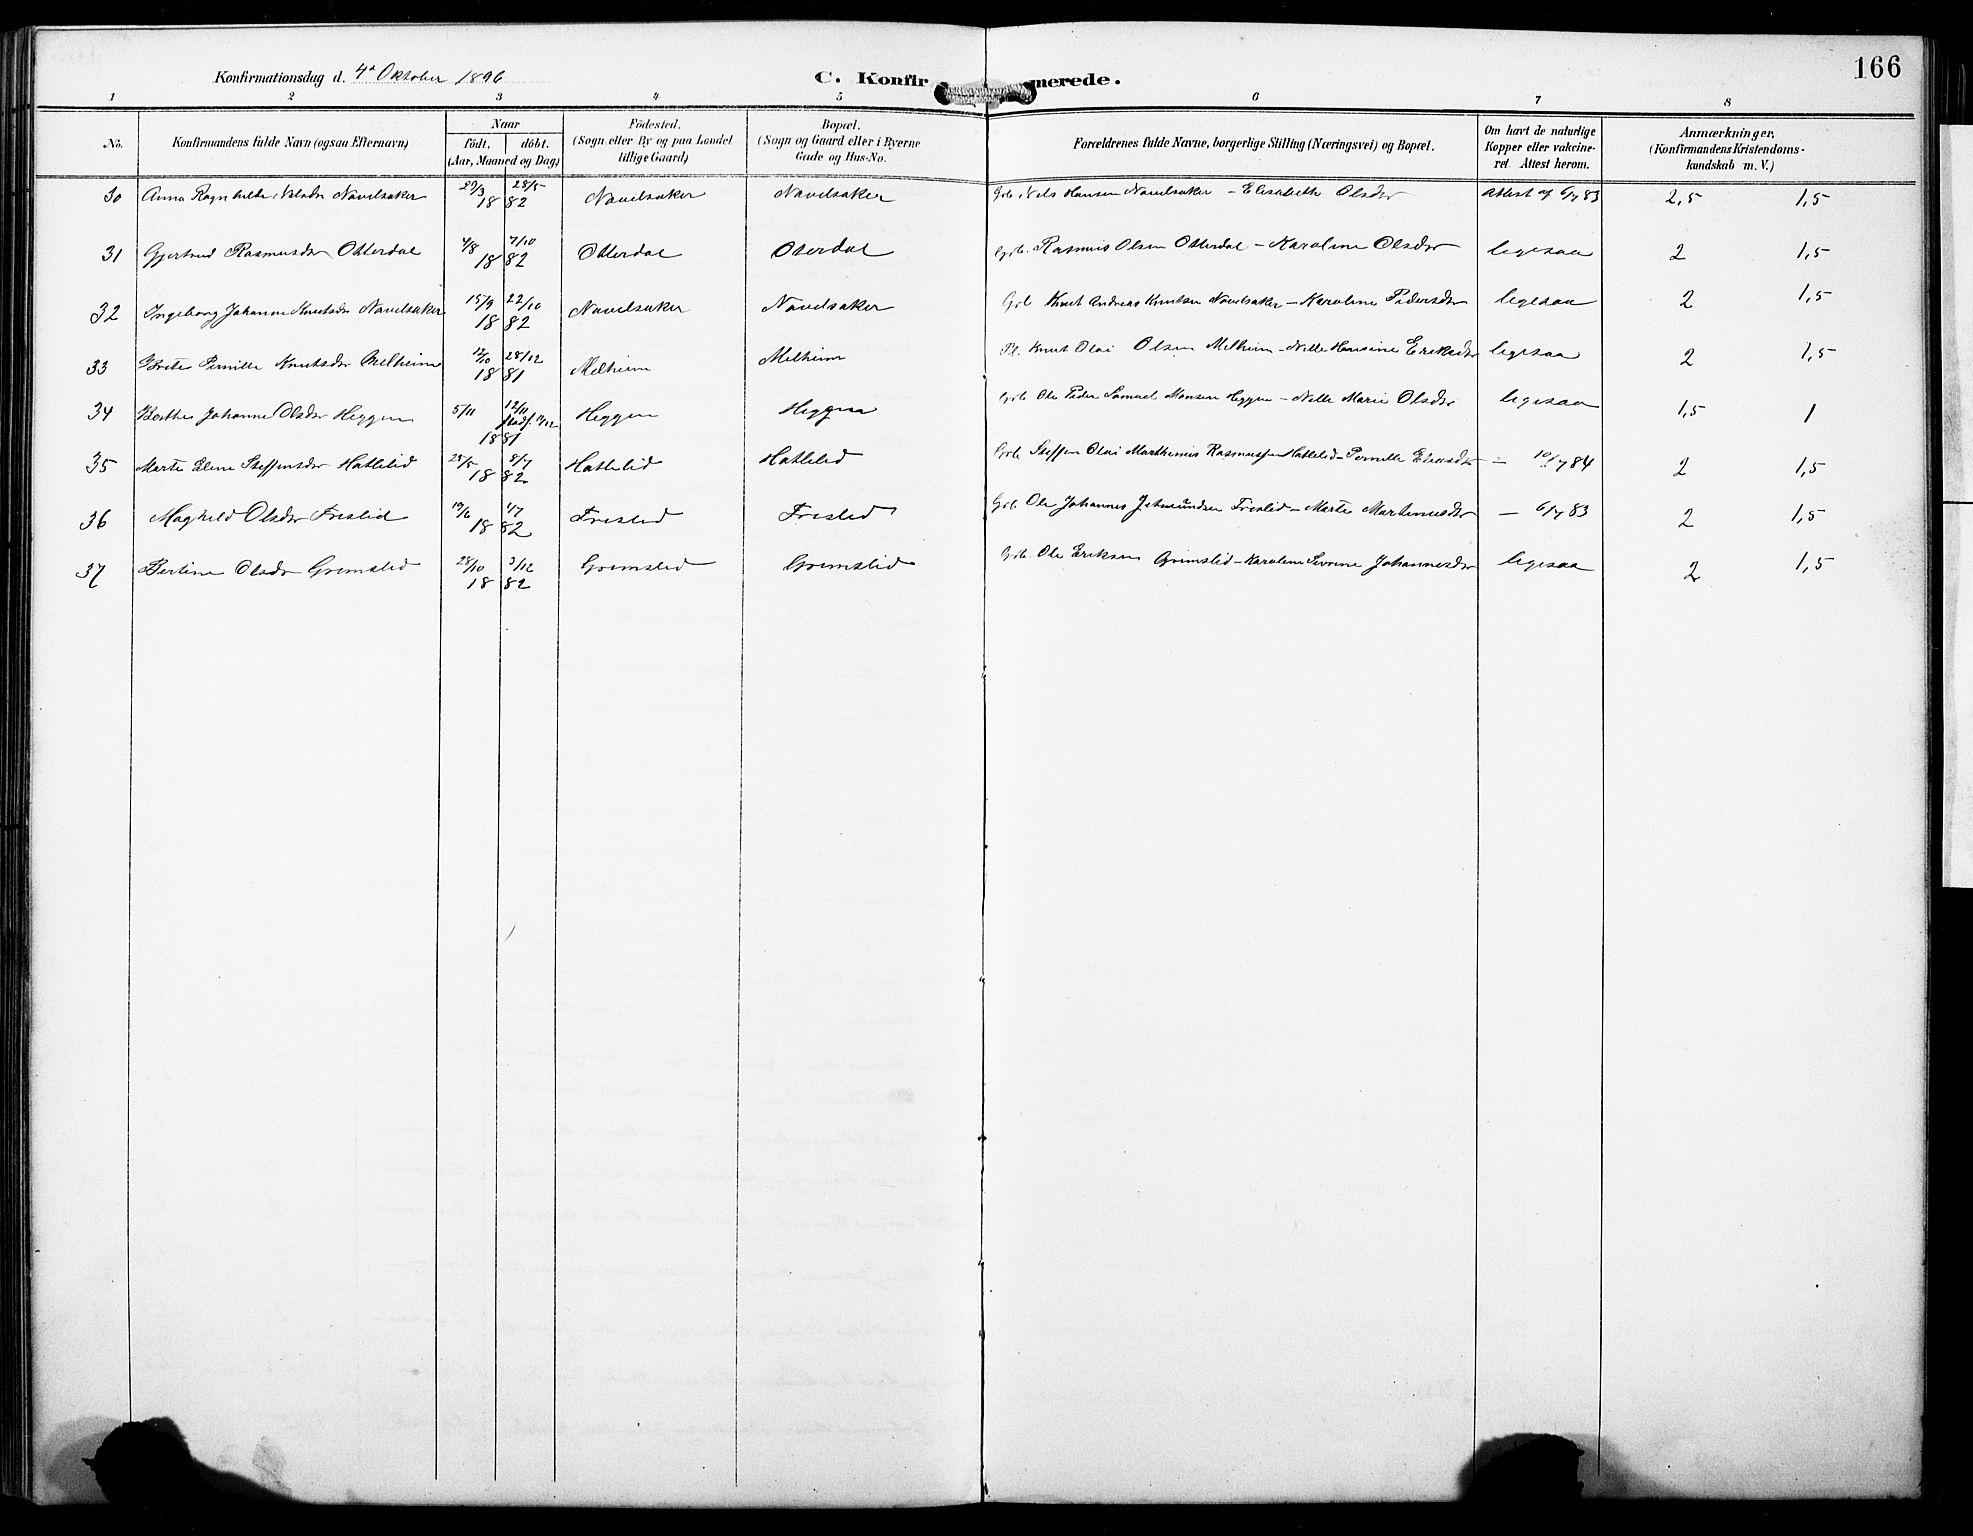 166
Konfirmationsdag d. 4de Oktober 1896 C. Konfirmerede.
1 2 3 4 5 6 7 8
No. Konfirmandens fulde Navn (ogsaa Efternavn) Naar födt, döbt. (Aar, Maaned og Dag) Födested. (Sogn eller By og paa Landet tillige Gaard) Bopæl. (Sogn og Gaard eller i Byerne Gade og Hus-No. Forældrenes fulde Navne, borgerlige Stilling (Næringsvei) og Bopæl. Om havt de naturlige Kopper eller vakcineret. Attest herom. Anmærkninger, (Konfirmandens Kristendomskundskab m. V.)
30 Anna Ragnhilda Nilsdr Navelsaker 29/3 28/5 1882 Navelsaker Navelsaker Grb. Nils Hansen Navelsaker – Elisabeth Olsdr Attest af 6/7 83 2,5 1,5
31 Gjertrud Rasmusdr Otterdal 4/8 7/10 1882 Otterdal Oterdal Grb. Rasmus Olsen Otterdal – Karoline Olsdr ligesaa 2 1,5
32 Ingeborg Johanne Knutsdr Navelsaker 15/9 22/10 1882 Navelsaker Navelsaker Grb Knut Andreas Knutsen Navelsaker – Karoline Pedersdr ligesaa 2 1,5
33 Brite Pernille Knutsdr Melheim 12/10 28/12 1881 Melheim Melheim Pl. Knut Olai Olsen Melheim – Nille Hansine Eriksdr ligesaa 2 1,5
34 Berthe Johanne Olsdr Heggen 5/11 12/11 1881 Heggen Heggen Grb Ole Peder Samuel Monsen Heggen – Nille Marie Olsdr ligesaa 1,5 1
35 Marte Elene Steffensdr Hatlelid 25/5 8/7 1882 Hatlelid Hatlelid Grb Steffen Olai Marthinus Rasmussen Hatlelid – Pernille Eliasdr – 10/7 84 2 1,5
36 Maghild Olsdr Frislid 19/6 1/7 1882 Frislid Frislid Grb. Ole Johannes Jetmundsen Frislid – Marte Martinusdr – 6/7 83 2 1,5
37 Bertine Olsdr Grimslid 28/10 3/12 1882 Grimslid Grimslid Grb. Ole Eriksen Grimslid – Karoline Severine Johannesdr ligesaa 2 1,5